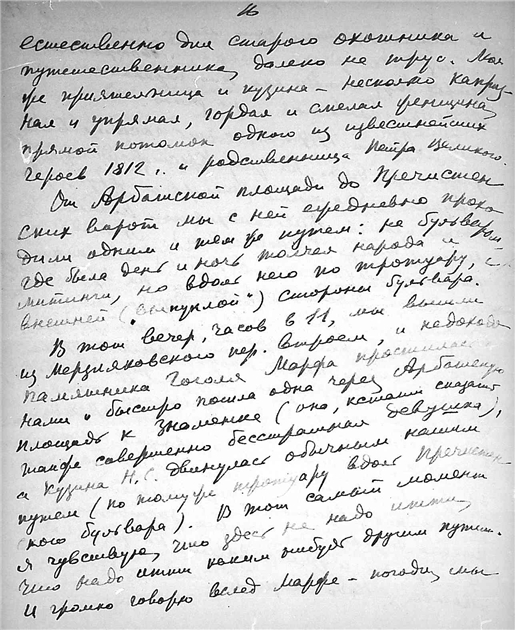 16
естественно для старого охотника и
путешественника, далеко не трус. Моя
же приятельница и кузина – несколько каприз-
ная и упрямая, гордая и смелая женщина,
прямой потомок одного из известнейших
героев 1812 г. и родственница Петра Великого.
От Арбатской площади до Пречистен
ских ворот мы с ней ежедневно прохо-
дили одним и тем же путем: не бульваром,
где была день и ночь толчея народа и
митинги, но вдоль него по тротуару, с
внешней („выпуклой") стороны бульвара.
В тот вечер, часов в 11, мы вышли
из Мерзляковского пер. втроем, и недоходя
памятника Гоголя Марфа простилась с
нами и быстро пошла одна через Арбатскую
площадь к Знаменке (она, кстати сказать
также совершенно бесстрашная девушка),
а кузина Н.С. двинулась обычным нашим
путем (по тому же тротуару вдоль Пречистен-
ского бульвара). В тот самый момент
я чувствую, что здесь не надо итти,
что надо итти каким нибудь другим путем.
И громко говорю вслед Марфе – погоди, мы